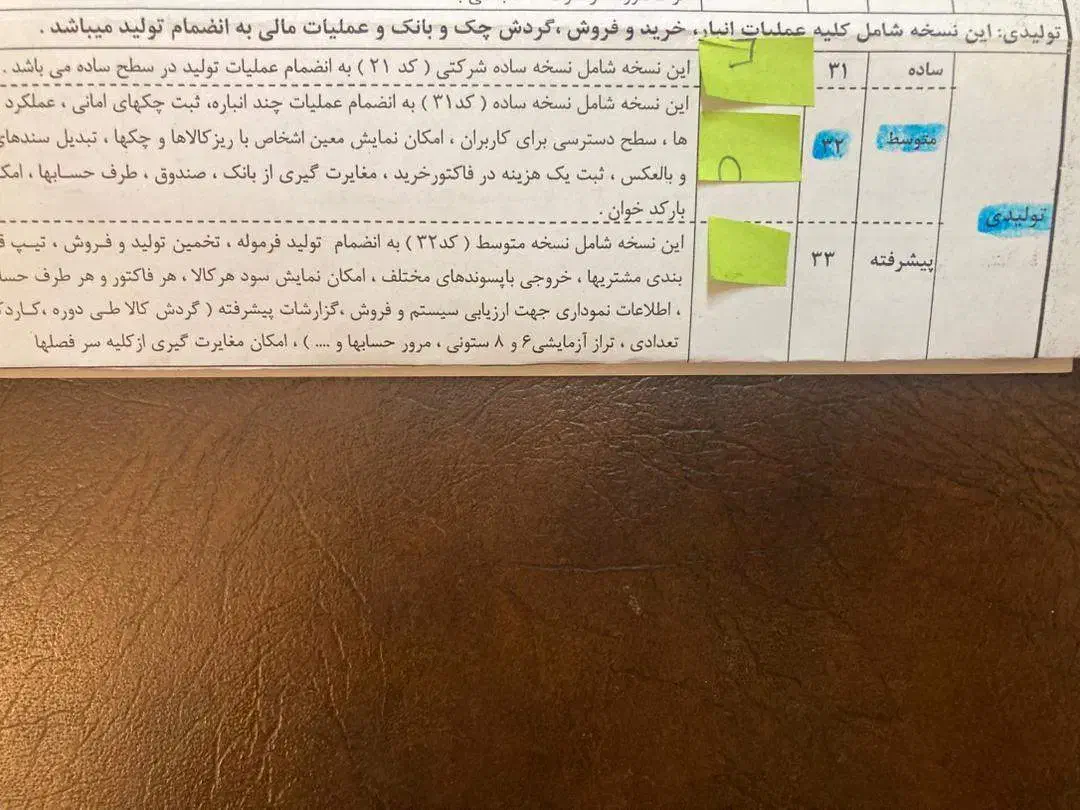 تولیدی: این نسخه شامل کلیه عملیات انبار، خرید و فروش ،گردش چک و بانک و عملیات مالی به انضمام تولید میباشد .
تولیدی
ساده
۳۱
این نسخه شامل نسخه ساده شرکتی ( کد ۲۱ ) به انضمام عملیات تولید در سطح ساده می باشد .
متوسط
۳۲
این نسخه شامل نسخه ساده ( کد۳۱ ) به انضمام عملیات چند انباره، ثبت چکهای امانی ، عملکرد
ها ، سطح دسترسی برای کاربران ، امکان نمایش معین اشخاص با ریزکالاها و چکها ، تبدیل سندهای
و بالعکس ، ثبت یک هزینه در فاکتورخرید ، مغایرت گیری از بانک ، صندوق ، طرف حسـابها ،
بارکد خوان .
پیشرفته
۳۳
این نسخه شامل نسخه متوسط ( کد۳۲ ) به انضمام تولید فرموله ، تخمین تولید و فـروش ، تیـپ
بندی مشتریها ، خروجی باپسوندهای مختلف ، امکان نمایش سود هرکالا ، هر فاکتور و هر طرف
، اطلاعات نموداری جهت ارزیابی سیستم و فروش ،گزارشات پیشرفته ( گردش کالا طـی دوره ،
تعدادی ، تراز آزمایشی۶ و ۸ ستونی ، مرور حسابها و .... ) ، امکان مغایرت گیری ازکلیه سر فصلها